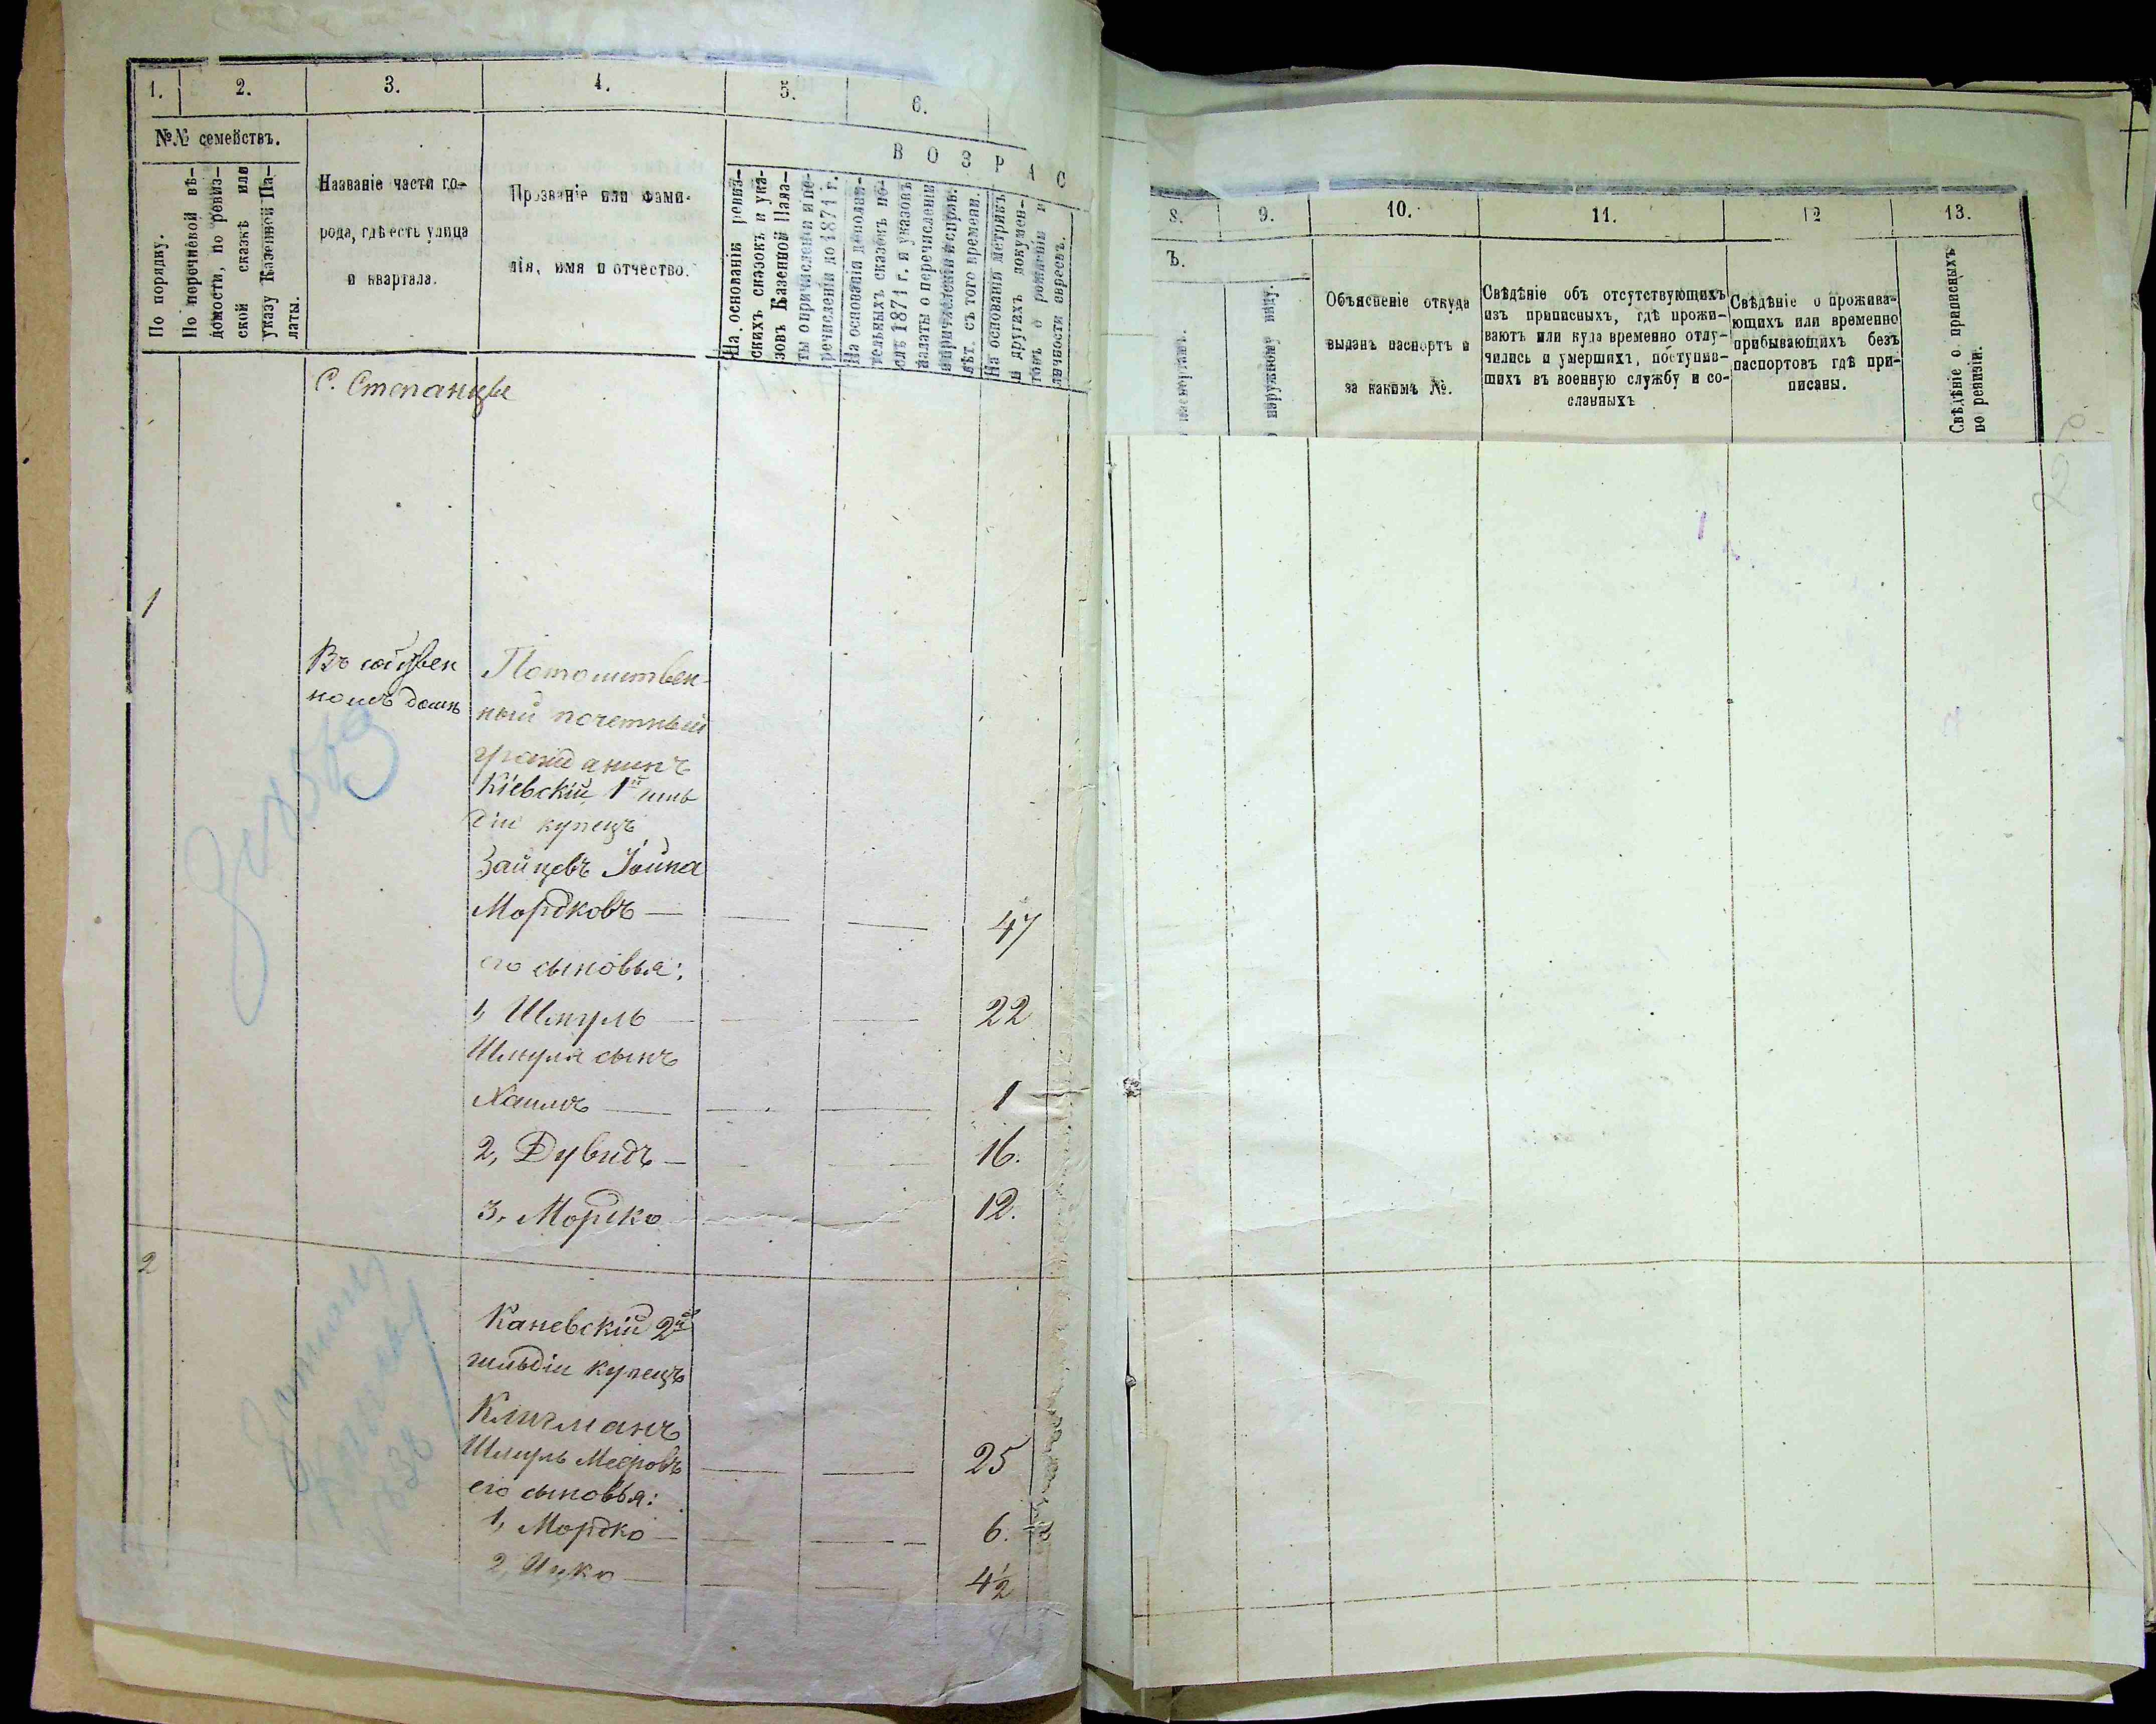 1.
2.
3.
4.
5.
6.
№№ семействъ.
По порядку.
По перечневой вѣ-
домости, по ревиз-
ской сказкѣ или
указу Казенной Па-
латы.
Названіе части го-
рода, гдѣ есть улица
и квартала.
Прозваніе или фами-
лія, имя и отчество.
В О З Р А С
На основаніи ревиз-
скихъ сказокъ и ука-
зовъ Казенной Пала-
ты о причисленіи и пе-
речисленіи до 1874 г.
На основаніи дополни-
тельныхъ сказокъ по-
слѣ 1874 г. и указовъ
палаты о перечисленіи
и причисленіи и исправ.
лѣт. съ того времени.
На основаніи метрикъ
и другихъ докумен-
товъ о рожденіи и
личности евреевъ.
С. Степанцы
1
Въ собствен
номъ домѣ
Потомствен-
ный почетный
гражданинъ
Кіевскій 1й гиль
діи купецъ
Зайцевъ Іойна
Мордковъ — 47
его сыновья:
1, Шмуль — 22
Шмуля сынъ
Хаимъ — 1
2, Дувидъ — 16.
3, Мордко 12.
2
Каневскій 2й
гильдіи купецъ
Клигманъ
Шмуль Мееровъ 25
его сыновья:
1, Мордко — 6.
2, Ицко — 4½
8.
9.
10.
11.
12
13.
Ъ.
паспортамъ.
наружному виду.
Объясненіе откуда
выданъ паспортъ и
за какимъ №.
Свѣдѣніе объ отсутствующихъ
изъ приписныхъ, гдѣ прожи-
ваютъ или куда временно отлу-
чились и умершихъ, поступив-
шихъ въ военную службу и со-
сланныхъ
Свѣдѣніе о прожива-
ющихъ или временно
прибывающихъ безъ
паспортовъ гдѣ при-
писаны.
Свѣдѣніе о приписныхъ
по ревизіи.